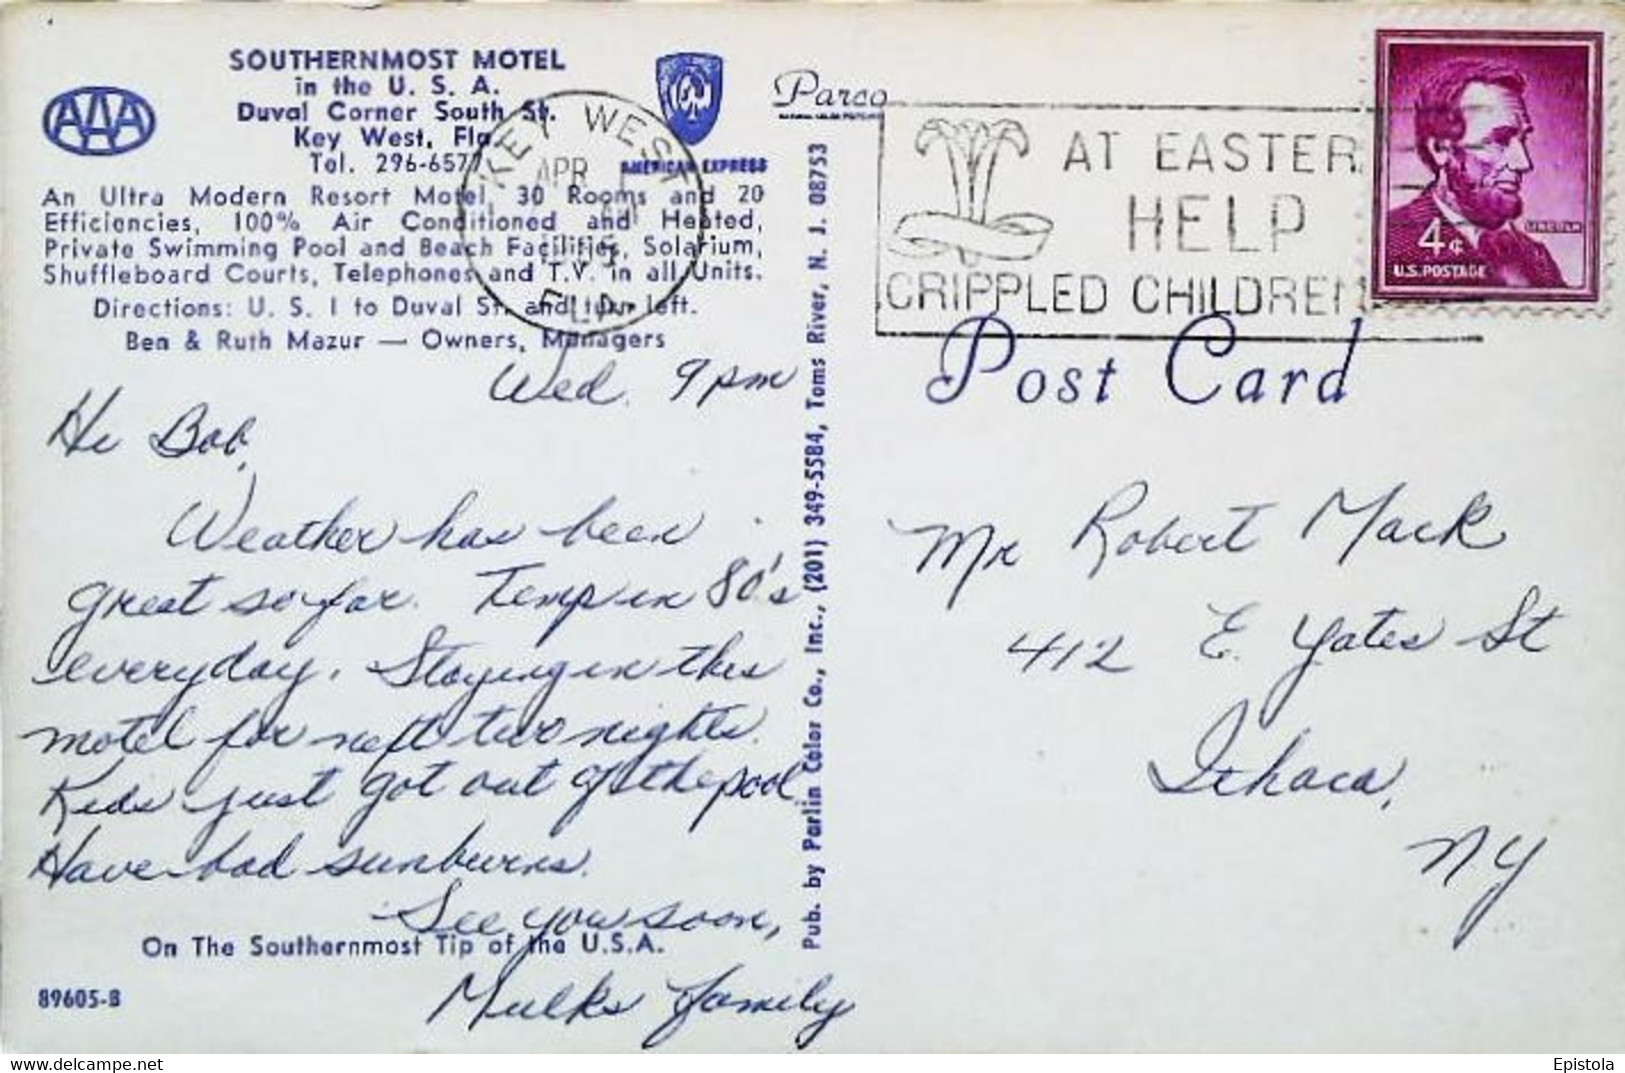 SOUTHERNMOST MOTEL
in the U. S. A.
Duval Corner South St.
Key West, Fla.
Tel. 296-6577
AAA
AMERICAN EXPRESS
An Ultra Modern Resort Motel, 30 Rooms and 20
Efficiencies, 100% Air Conditioned and Heated,
Private Swimming Pool and Beach Facilities, Solarium,
Shuffleboard Courts, Telephones and T.V. in all Units.
Directions: U. S. 1 to Duval St. and turn left.
Ben & Ruth Mazur — Owners, Managers
KEY WEST
APR
FLA.
Wed. 9 pm
Hi Bob,
Weather has been
great so far. Temp in 80's
everyday. Staying in this
motel for next two nights.
Kids just got out of the pool
Have bad sunburns.
See you soon,
Mulks family
On The Southernmost Tip of the U.S.A.
89605-B
Pub. by Parlin Color Co., Inc., (201) 349-5584, Toms River, N. J. 08753
Parco
NATURAL COLOR POSTCARD
AT EASTER
HELP
CRIPPLED CHILDREN
LINCOLN
4¢
U.S. POSTAGE
Post Card
Mr Robert Mack
412 E. Yates St
Ithaca,
NY
Epistola